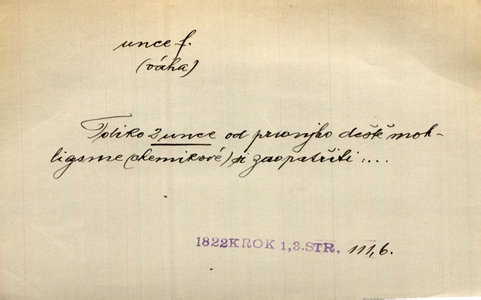 unce f.
(váha)
Toliko 2 unce od prvnjho deště moh-
ligsme (chemikové) si zaopatřiti ....
1822 KROK 1,3.STR. 111,6.